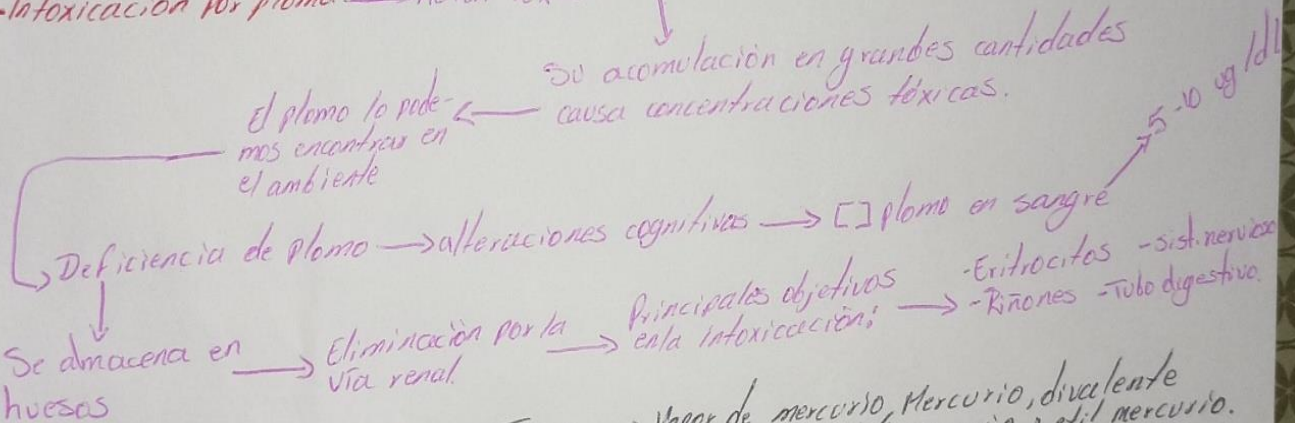 -Intoxicación por
Su acomulación en grandes cantidades
causa concentraciones tóxicas.
El plomo lo pode-
mos encontrar en
el ambiente
Deficiencia de plomo → alteraciones cognitivas → [ ] plomo en sangre
5-10 ug/dl
Se almacena en
huesos
Eliminación por la
vía renal.
Principales objetivos
en la intoxicación:
-Eritrocitos -sist.nervioso
-Riñones -Tubo digestivo.
de mercurio, Mercurio, divalente
mercurio.